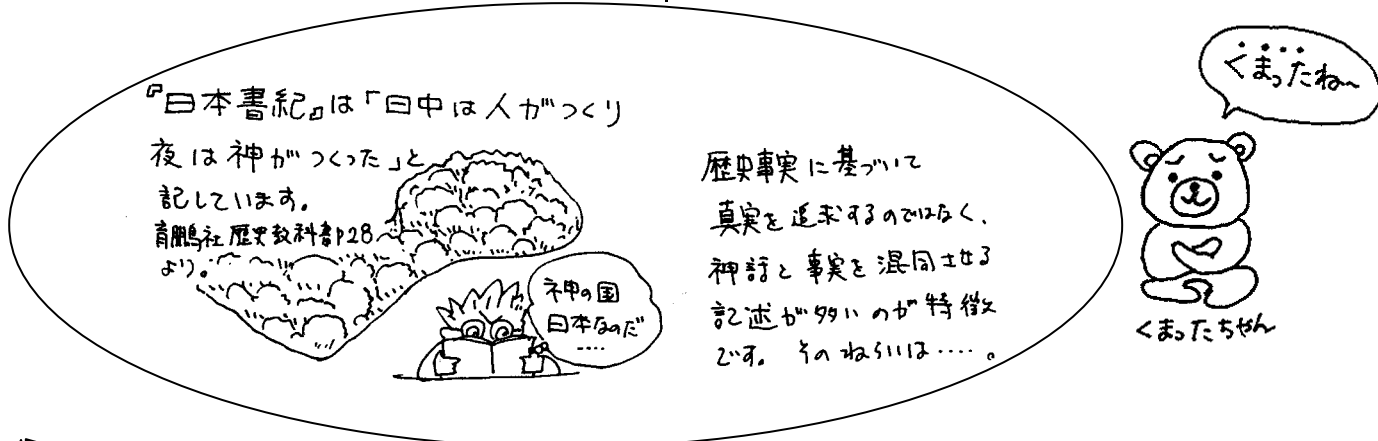 『日本書紀』は「日中は人がつくり
夜は神がつくった」と
記しています。
育鵬社歴史教科書P28
より。
神の国
日本なのだ
‥‥
歴史事実に基づいて
真実を追求するのではなく、
神話と事実を混同させる
記述が多いのが特徴
です。そのねらいは‥‥。
くまったね～
くまったちゃん